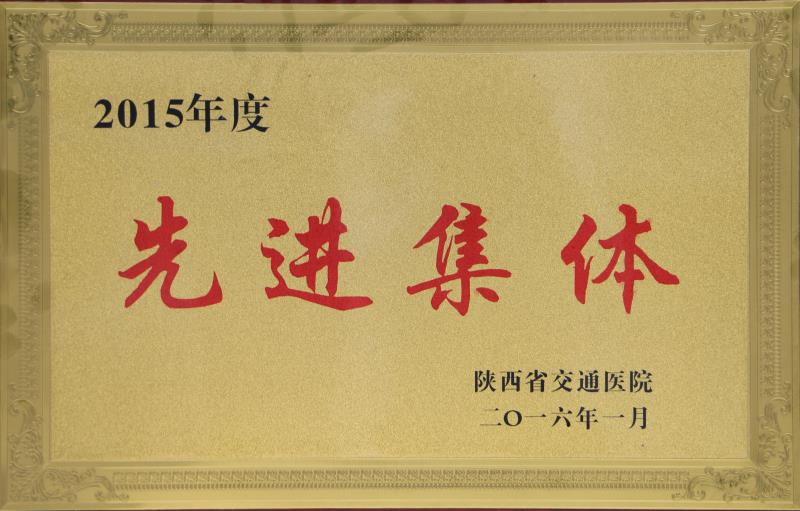 2015年度
先进集体
陕西省交通医院
二〇一六年一月